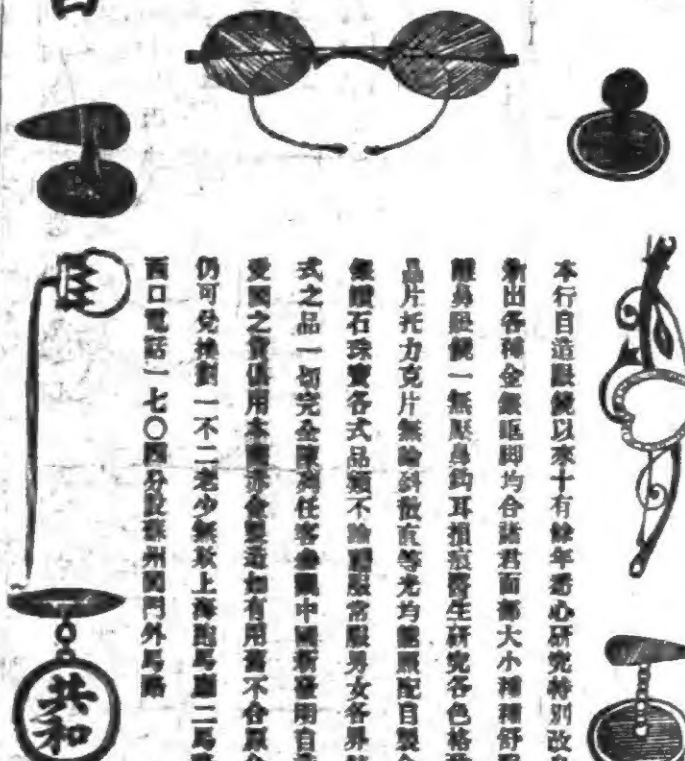 本行自造眼鏡以來十有餘年悉心研究特別改良
新出各種金銀眶脚均合諸君面部大小種種舒
鏡一無壓鼻鈎耳損痕醫生研究各色格
晶片托力克片無論斜散直等光均能照配自製金
銀鑽石珠寶各式品類不論國服常服男女各界
式之品一切完全陳列任客參觀中國新發明自造
愛國之貨俱用本國赤金製造如有用舊不合原金
仍可兌換劃一不二老少無欺上海跑馬廳二馬路
西口電話一七〇四分設蘇州閶門外馬路
共和